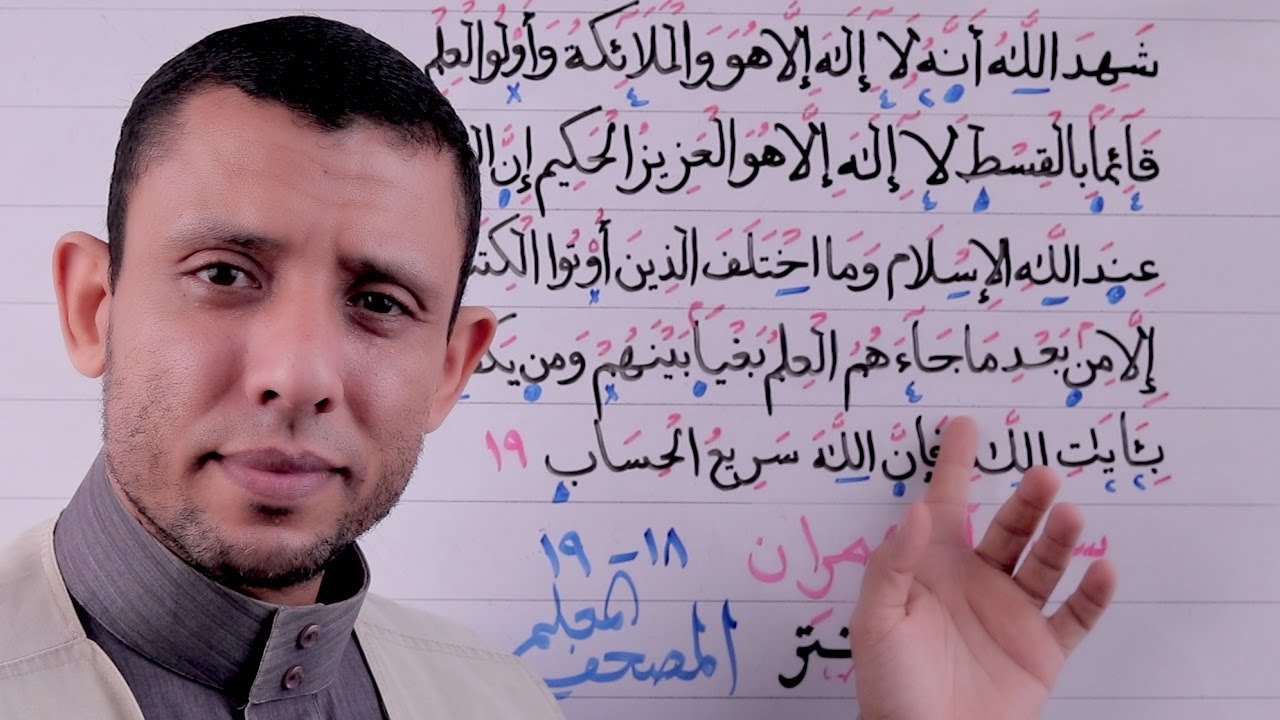 شَهِدَ اللَّهُ أَنَّهُ لَآ إِلَٰهَ إِلَّا هُوَ وَالْمَلَٰٓئِكَةُ وَأُوْلُوا الْعِلْمِ
قَآئِماً بِالْقِسْطِ لَآ إِلَٰهَ إِلَّا هُوَ الْعَزِيزُ الْحَكِيم إِنَّ
عِندَ اللَّهِ الْإِسْلَام وَمَا اخْتَلَفَ الَّذِينَ أُوْتُوا
إِلَّا مِنْ بَعْدِ مَا جَآءَ هُمُ الْعِلْمُ بَغْياً بَيْنَهُمْ وَمَن
بِـَٔايَٰتِ اللَّهِ فَإِنَّ اللَّهَ سَرِيعُ الْحِسَاب ١٩
١٨ - ١٩
المصحف المعلم